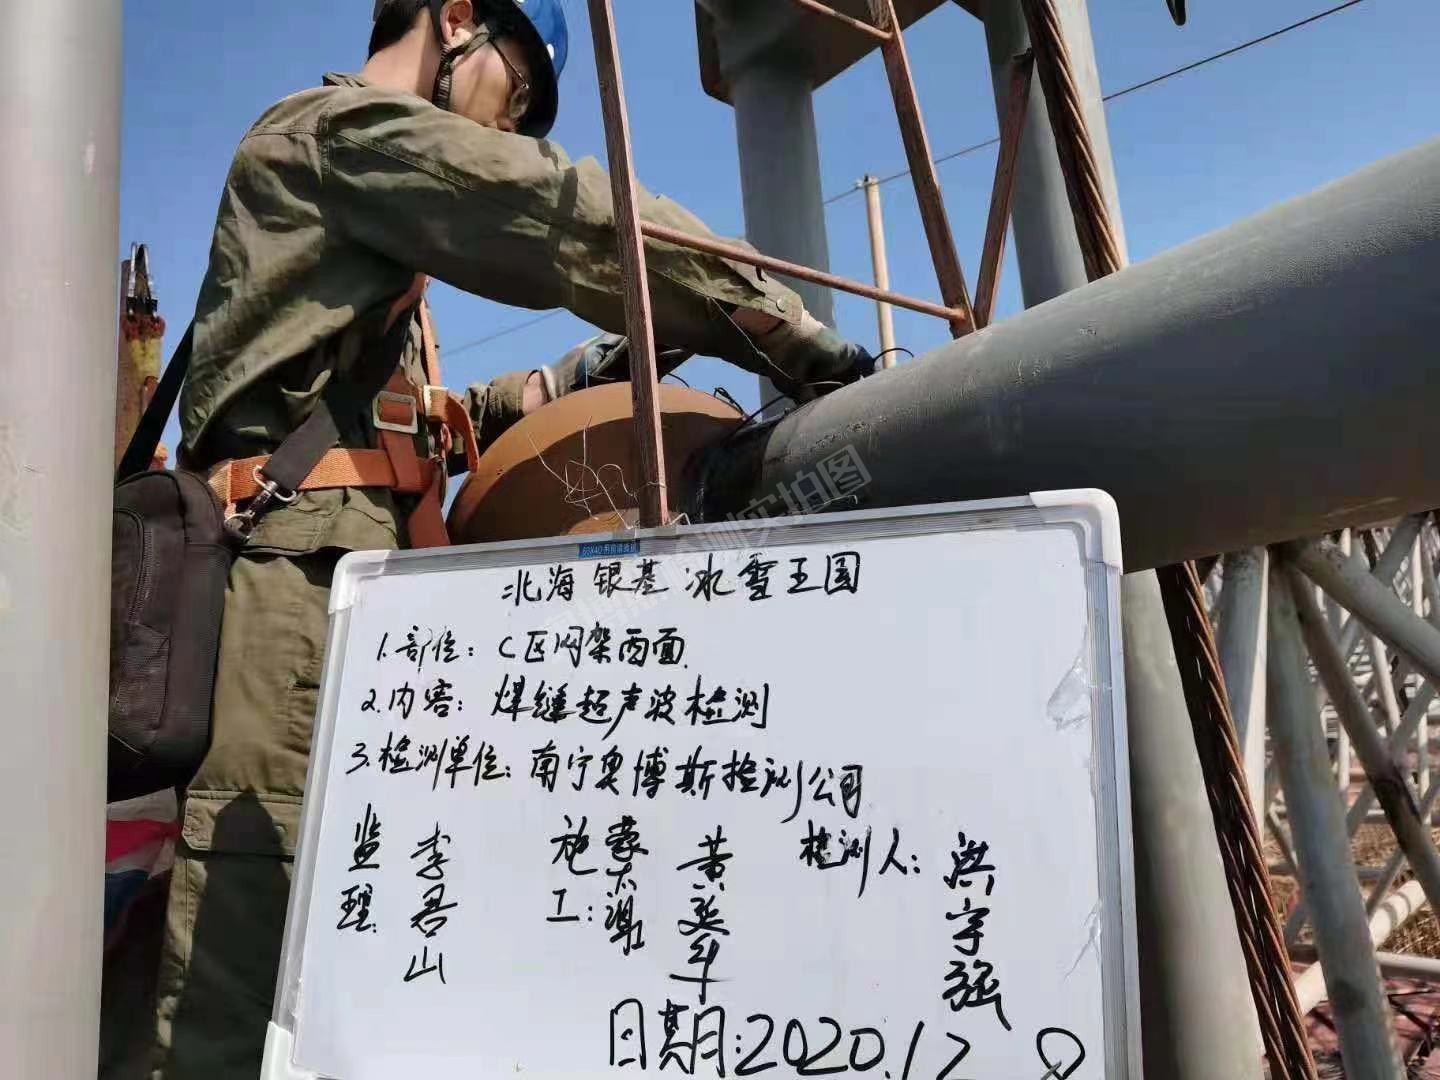 北海银基冰雪王国
1.部位：C区网架西面
2.内容：焊缝超声波检测
3.检测单位：南宁奥博斯检测公司
监理：李君山
施工：
检测人：洪宇强
日期：2020.12
检测实拍图